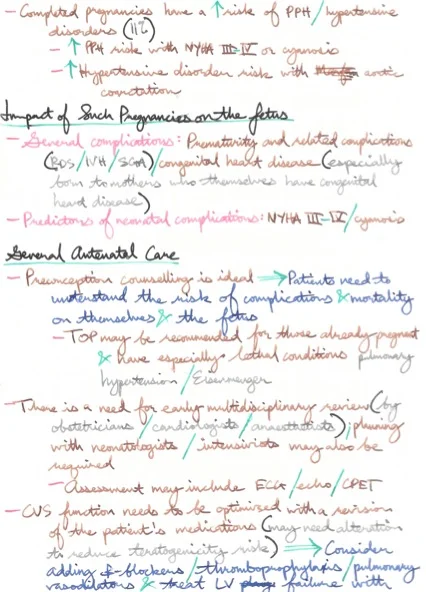 - Completed pregnancies have a ↑ risk of PPH / hypertensive
disorders (11%)
- ↑ PPH risk with NYHA III-IV or cyanosis
- ↑ Hypertensive disorder risk with aortic
coarctation
Impact of Such Pregnancies on the fetus
- General complications: Prematurity and related complications
(RDS / IVH / SGA) / congenital heart disease (especially
born to mothers who themselves have congenital
heart disease)
- Predictors of neonatal complications: NYHA III-IV / cyanosis
General Antenatal Care
- Preconception counselling is ideal ⇒ Patients need to
understand the risk of complications & mortality
on themselves & the fetus
- TOP may be recommended for those already pregnant
& have especially lethal conditions pulmonary
hypertension / Eisenmenger
- There is a need for early multidisciplinary review (by
obstetricians / cardiologists / anaesthetists); planning
with neonatologists / intensivists may also be
required
- Assessment may include ECG / echo / CPET
- CVS function needs to be optimized with a revision
of the patient's medications (may need alteration
to reduce teratogenicity risk) ⇒ Consider
adding β-blockers / thromboprophylaxis / pulmonary
vasodilators & treat LV failure with